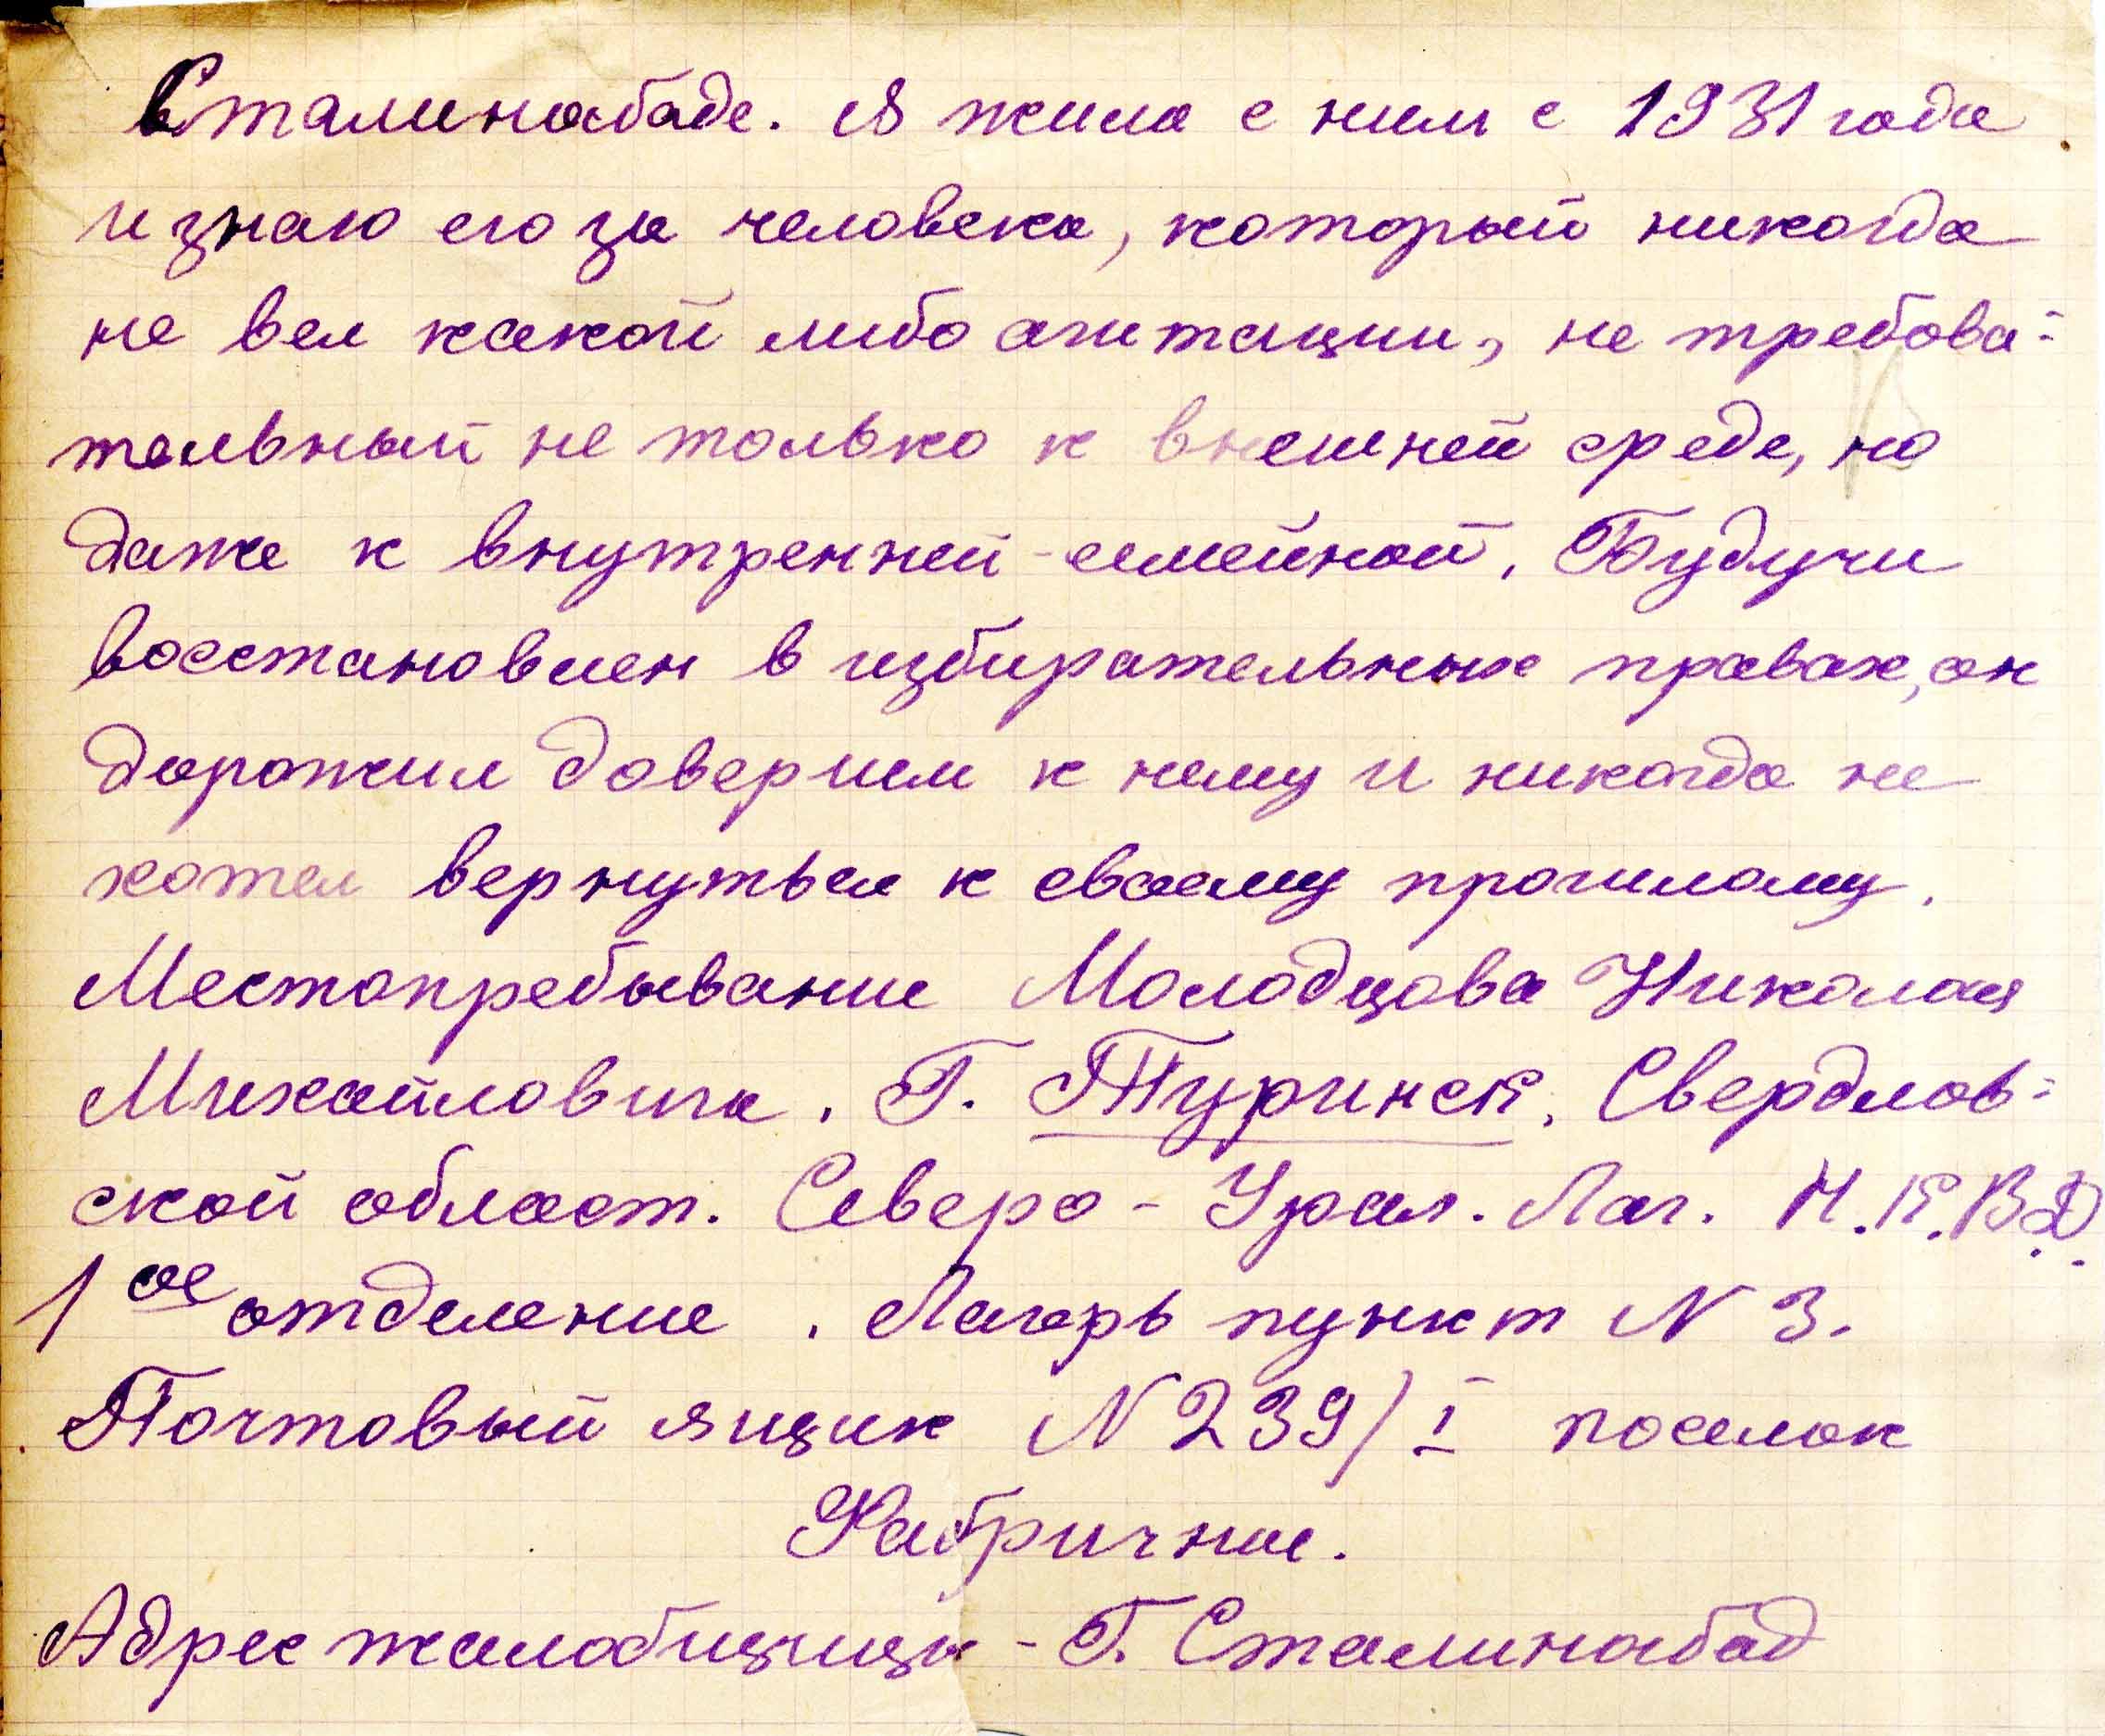 в Сталинабаде. Я жила с ним с 1931 года
и знаю его за человека, который никогда
не вел какой либо агитации, не требова-
тельный не только к внешней среде, но
даже к внутренней - семейной. Будучи
восстановлен в избирательных правах, он
дорожил доверием к нему и никогда не
хотел вернуться к своему прошлому.
Местопребывание Молодцова Николая
Михайловича. Г. Туринск, Свердлов-
ской област. Северо-Урал. Лаг. Н.К.В.Д.
1ое отделение. Лагерь пункт N 3.
Почтовый ящик N 239/I поселок
Фабричные.
Адрес жалобщицы - Г. Сталинабад